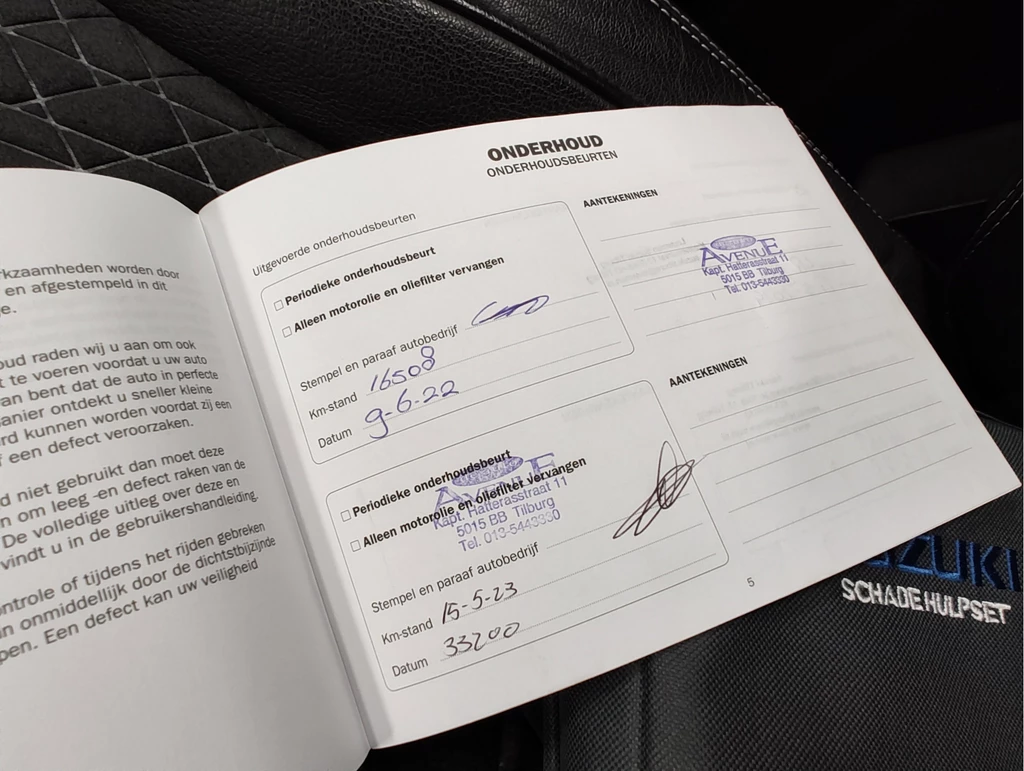 rkzaamheden worden door
en afgestempeld in dit
e.
oud raden wij u aan om ook
t te voeren voordat u uw auto
an bent dat de auto in perfecte
anier ontdekt u sneller kleine
rd kunnen worden voordat zij een
f een defect veroorzaken.
d niet gebruikt dan moet deze
n om leeg -en defect raken van de
De volledige uitleg over deze en
vindt u in de gebruikershandleiding.
ontrole of tijdens het rijden gebreken
n onmiddellijk door de dichtstbijzijnde
pen. Een defect kan uw veiligheid
ONDERHOUD
ONDERHOUDSBEURTEN
Uitgevoerde onderhoudsbeurten
Periodieke onderhoudsbeurt
Alleen motorolie en oliefilter vervangen
Stempel en paraaf autobedrijf
Km-stand 16508
Datum 9-6-22
AANTEKENINGEN
AVENUE
Kapt. Hatterasstraat 11
5015 BB Tilburg
Tel. 013-5443330
Periodieke onderhoudsbeurt
Alleen motorolie en oliefilter vervangen
AVENUE
Kapt. Hatterasstraat 11
5015 BB Tilburg
Tel. 013-5443330
Stempel en paraaf autobedrijf
Km-stand 15-5-23
Datum 33200
AANTEKENINGEN
5
UZUKI
SCHADE HULPSET